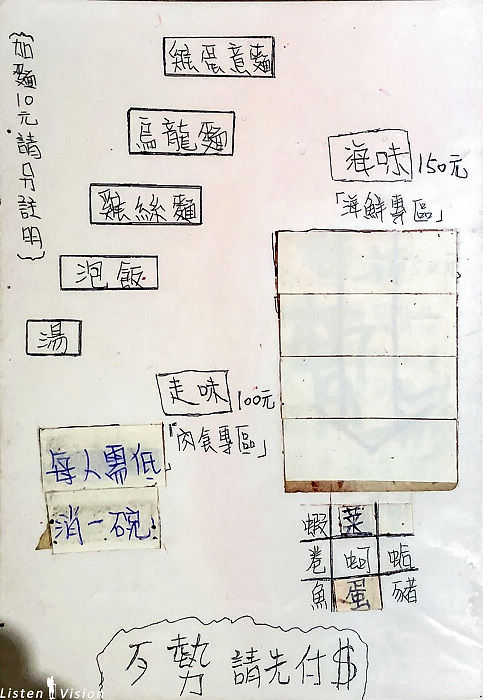 {加麵10元請另註明}
雞蛋意麵
烏龍麵
雞絲麵
泡飯
湯
海味 150元
「海鮮專區」
走味 100元
「肉食專區」
每人需低
消一碗
蝦 菜
卷 蚵 蛤
魚 蛋 豬
歹勢 請先付$
Listen Vision